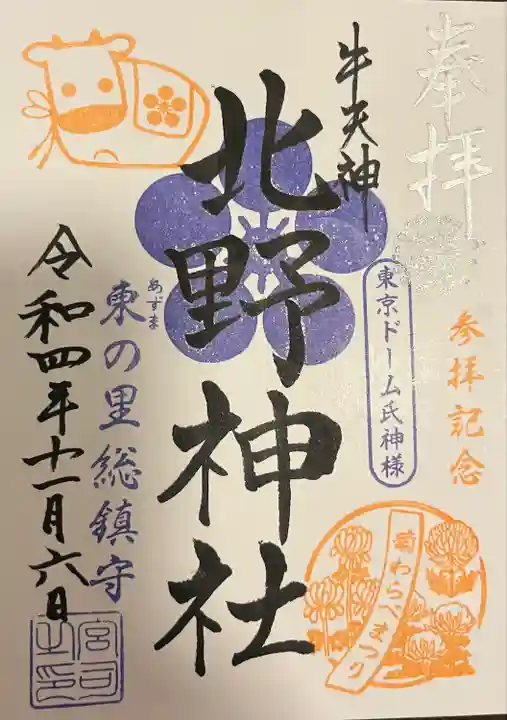 奉拝
参拝記念
東京ドーム氏神様
菊わらべまつり
牛天神
北野神社
東の里総鎮守
あずま
令和四年十一月六日
宮司之印